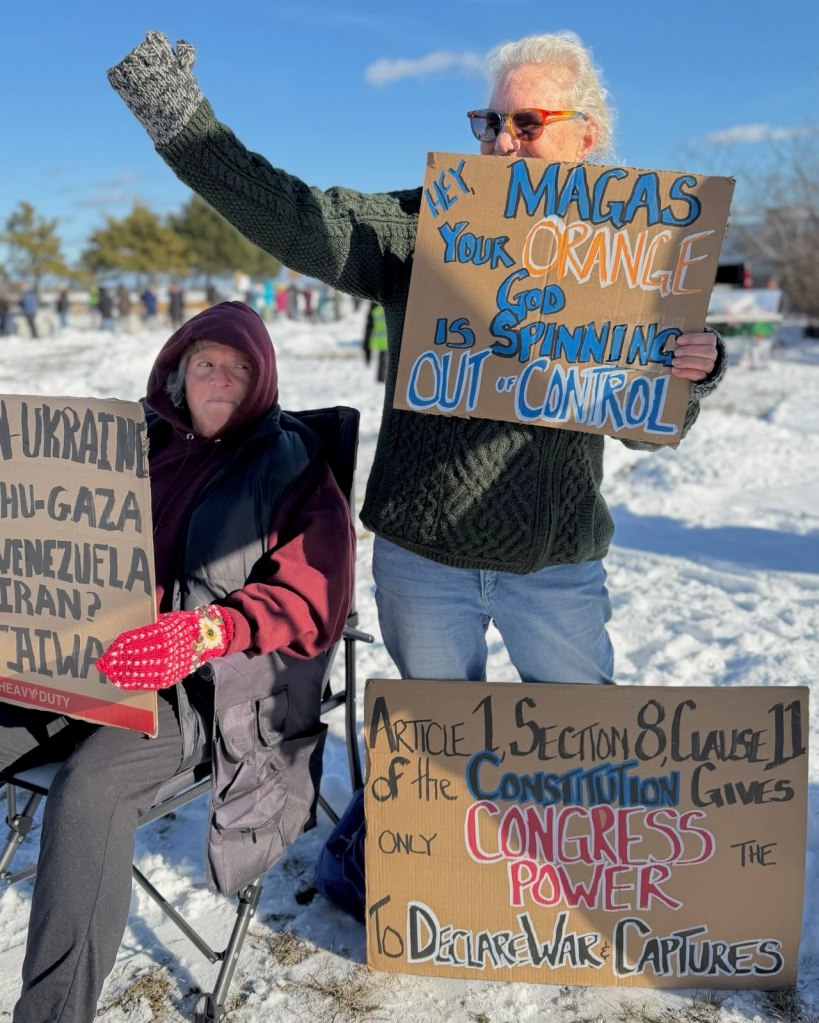 HEY, MAGAS
YOUR ORANGE
GOD
IS SPINNING
OUT OF CONTROL
-UKRAINE
HU-GAZA
VENEZUELA
IRAN?
TAIWA
HEAVY DUTY
ARTICLE 1, SECTION 8, CLAUSE 11
Of the CONSTITUTION GIVES
ONLY CONGRESS THE
POWER
TO DECLARE WAR & CAPTURES